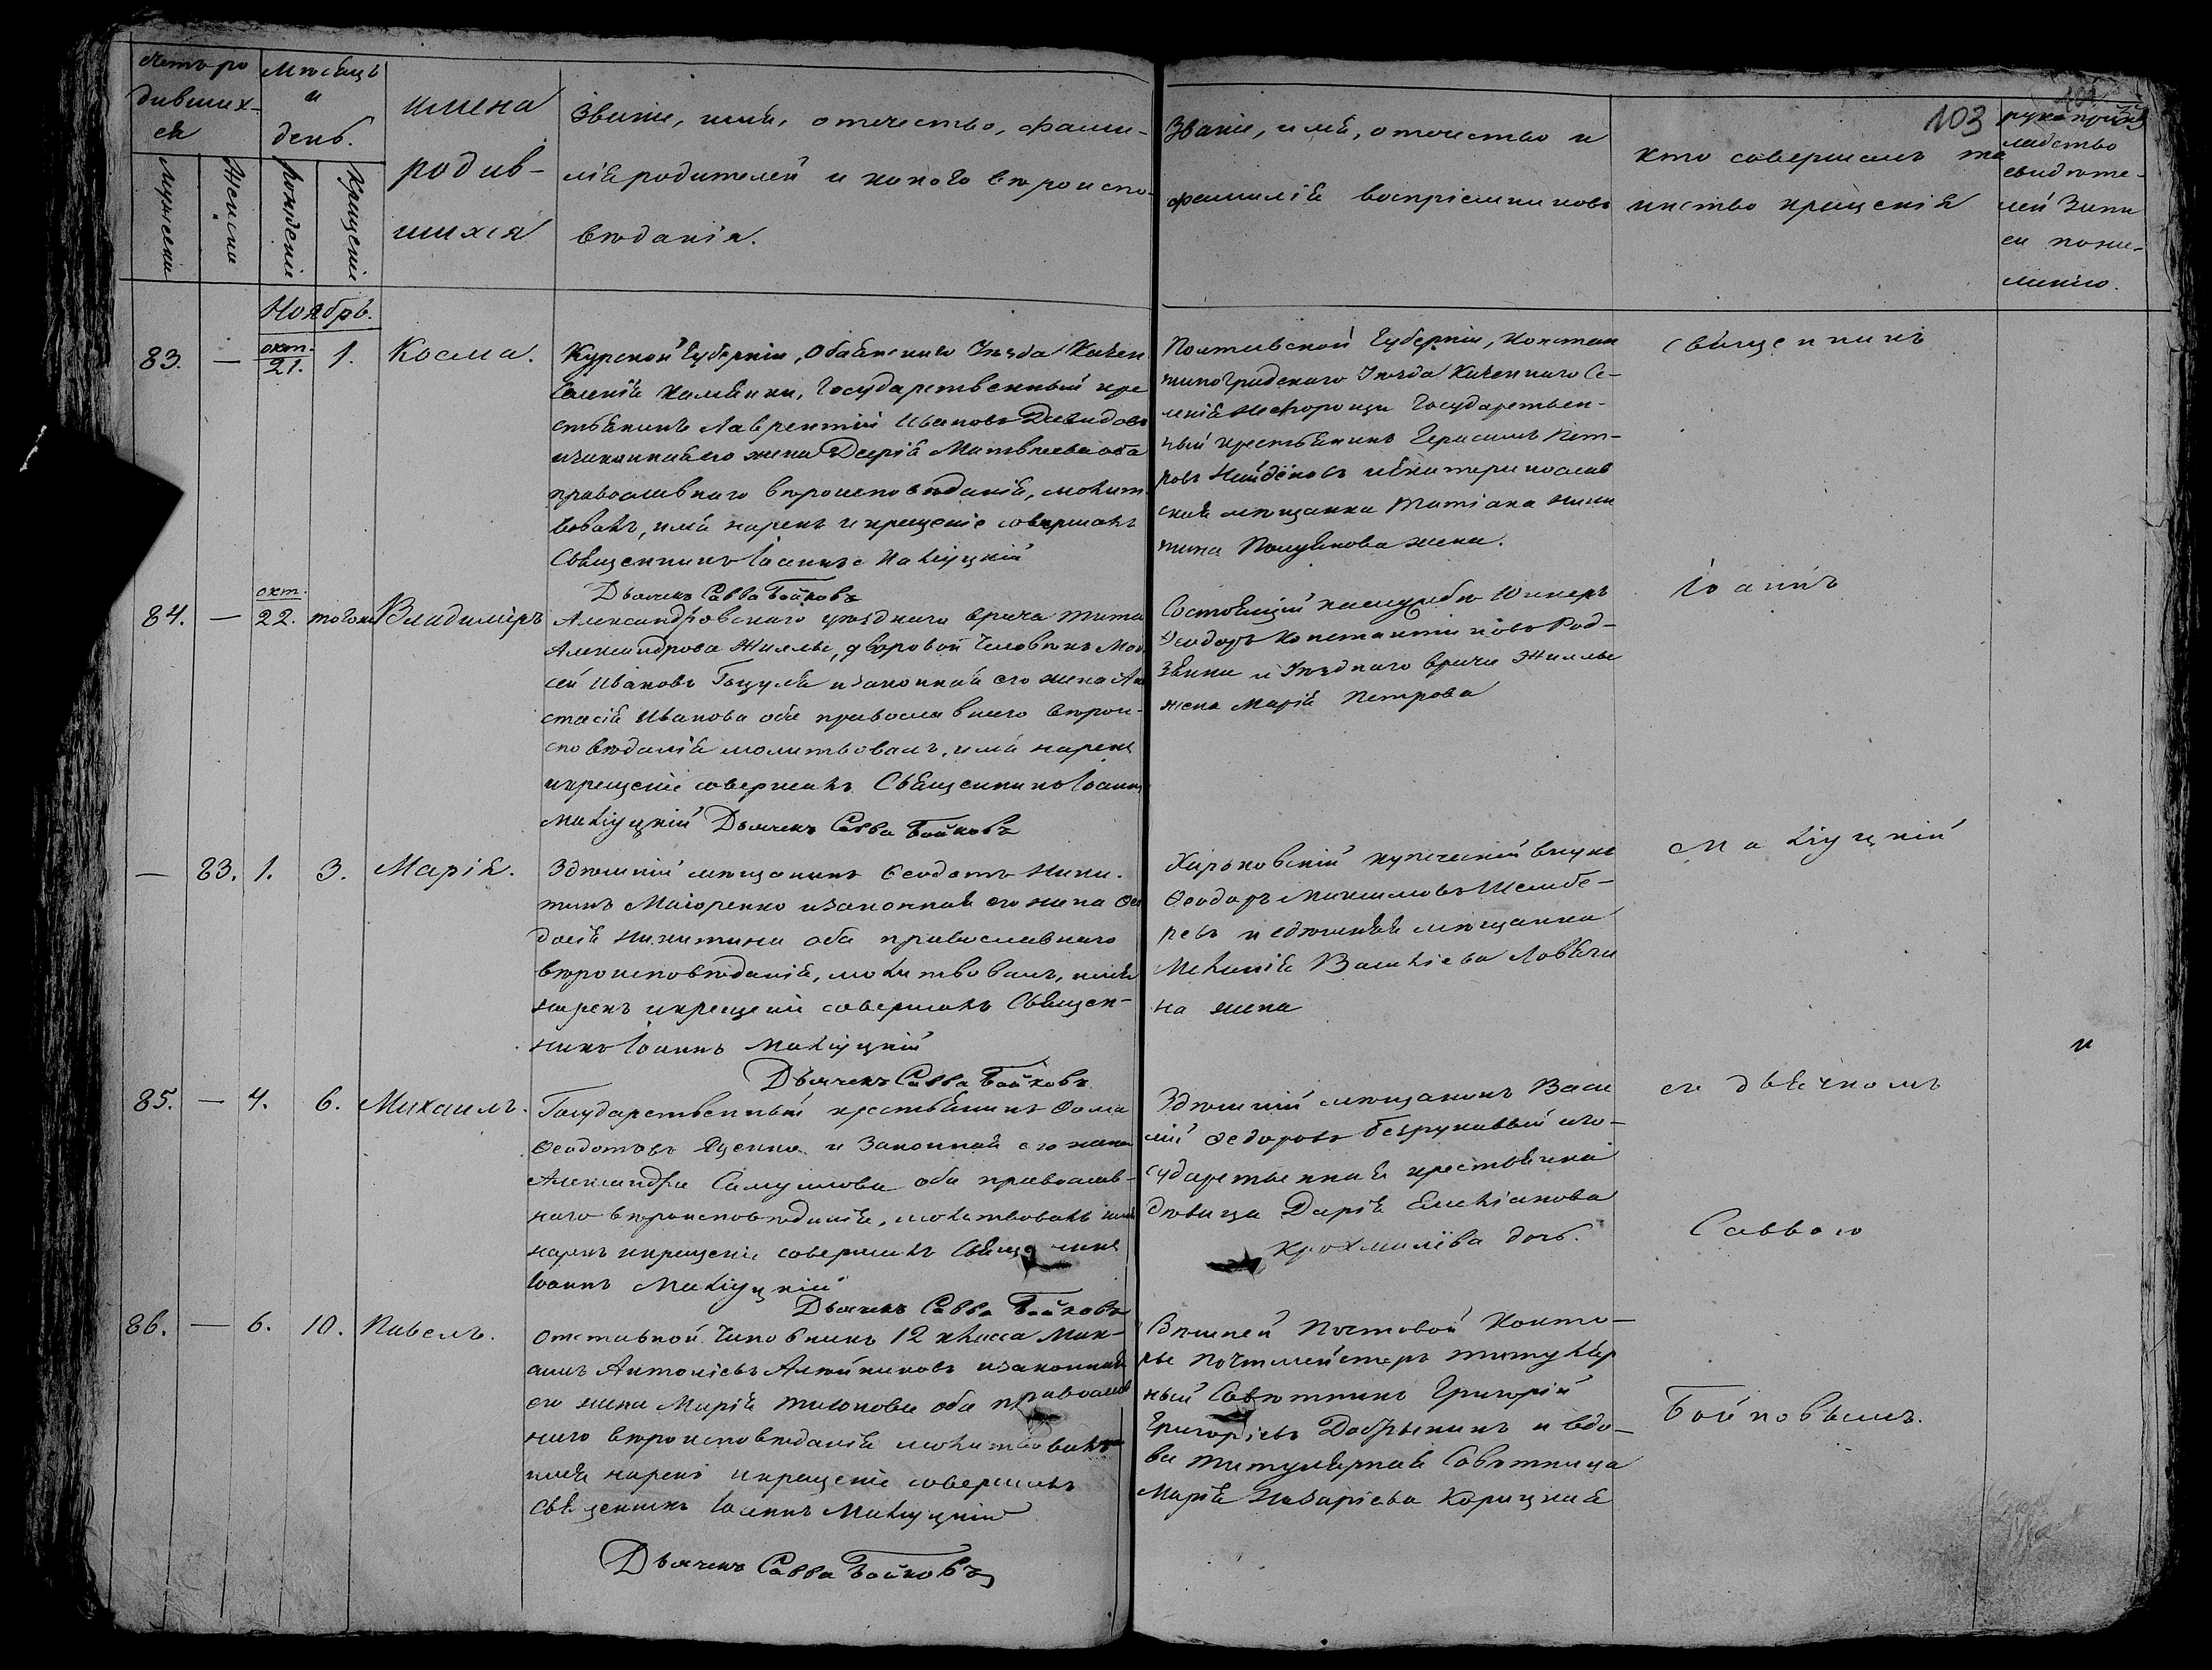 Счетъ ро
дивших-
ся
Мѣсяцъ
и
день.
Мужеска
Женска
рожденіе
Крещеніе
имена
родив-
шихся
Званіе, имя, отечество, фами-
лія родителей и какого вѣроиспо-
вѣданія.
Званіе, имя, отечество и
фамилія воспріемниковъ
103
кто совершалъ та
инство крещенія
рукоприк
ладство
свидѣте-
лей Запи
си по же-
ланію.
Ноябрь.
83. — окт. 21. 1. Косма.
Курской Губерніи, Обаянскаго Уѣзда Казен
Селенія Камянки, Государственный кре
стьянинъ Лаврентій Ивановъ Давидовъ
и законная его жена Дарія Матвѣева оба
православнаго вѣроисповѣданія, молит
вовалъ, имя нарекъ и крещеніе совершалъ
Священникъ Іоаннъ Маклуцкій
Дьячекъ Савва Бойковъ
Полтавской Губерніи, Констан
тиноградскаго Уѣзда Казеннаго Се-
ленія Нехворощи Государствен-
ный крестьянинъ Герасимъ Пет-
ровъ Найдёновъ и Екатеринослав
ская мѣщанка Татіана Ники
тина Полуянова жена.
священникъ
84. — окт. 22. того же Владиміръ
Александровскаго уѣзднаго врача Тита
Александрова Жилле, дворовой человѣкъ Мои
сей Ивановъ Гацуля и законная его жена Ана
стасія Иванова оба православнаго вѣрои-
сповѣданія молитвовалъ, имя нарекъ
и крещеніе совершалъ Священникъ Іоаннъ
Маклуцкій Дьячекъ Савва Бойковъ
Состоящій на службѣ Юнкеръ
Ѳеодоръ Константиновъ Род-
зянка и Уѣзднаго врача Жилле
жена Марія Петрова
Іоаннъ
— 83. 1. 3. Марія.
Здѣшній мѣщанинъ Ѳеодотъ Ники-
тинъ Маіоренко и законная его жена Ѳео
досія Никитина оба православнаго
вѣроисповѣданія, молитвовалъ, имя
нарекъ и крещеніе совершалъ Священ-
никъ Іоаннъ Маклуцкій
Дьячекъ Савва Бойковъ
Харьковскій купеческій внукъ
Ѳеодоръ Михаиловъ
ревъ и здѣшняя мѣщанка
Меланія Василіева Ловягі
на жена
Маклуцкій
85. — 4. 6. Михаилъ.
Государственный крестьянинъ Ѳома
Ѳеодотовъ Яценко и законная его жена
Александра Самуилова оба православ-
наго вѣроисповѣданія, молитвовалъ имя
нарекъ и крещеніе совершалъ Священникъ
Іоаннъ Маклуцкій
Дьячекъ Савва Бойковъ
Здѣшній мѣщанинъ Васи
лій Ѳедоровъ Безрукавый и го-
сударственная крестьянка
дѣвица Дарія Емеліанова
Крохмалёва дочь.
съ дьячкомъ
Саввою
и
86. — 6. 10. Павелъ.
Отставной Чиновникъ 12 класса Мих-
аилъ Антоніевъ Алейниковъ и законная
его жена Марія Тихонова оба православ
наго вѣроисповѣданія молитвовалъ
имя нарекъ и крещеніе совершалъ
Священникъ Іоаннъ Маклуцкій
Дьячекъ Савва Бойковъ
Здѣшней Почтовой Конто-
ры Почтмейстеръ титуляр
ный Совѣтникъ Григорій
Григорьевъ Добрынинъ и вдо-
ва титулярная Совѣтница
Марія Назаріева Корицкая
Бойковымъ.